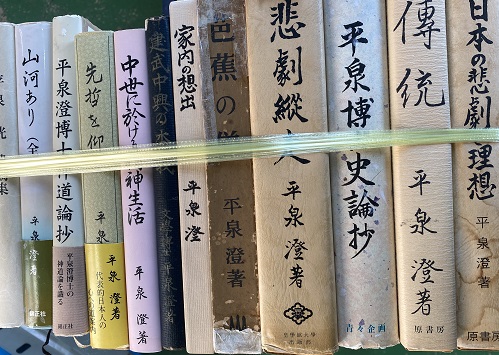 日本の悲劇と理想
平泉澄著
原書房
傳統
平泉澄著
原書房
平泉博士史論抄
青々企画
悲劇縦走
平泉澄著
皇學館大學
出版部
芭蕉の
平泉澄著
家内の想出
平泉澄
建武中興の本義
文學博士平泉澄著
中世に於ける精神生活
平泉澄著
先哲を仰
平泉澄著
代表的日本人の
平泉澄博士神道論抄
平泉澄博士の
神道論を識る
錦正社
山河あり(全
平泉澄著
錦正社